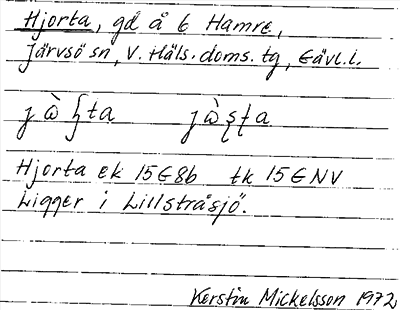 Hjorta, gd å 6 Hamre,
Järvsö sn, V. Häls. doms. tg, Gävl. l.
Hjorta ek 15G8b tk 15G NV
Ligger i Lillstråsjö.
Kerstin Mickelsson 1972